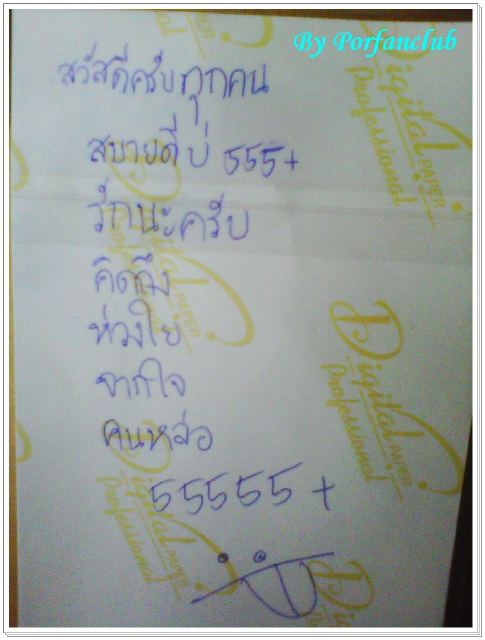 By Porfanclub
สวัสดีครับทุกคน
สบายดีบ่ 555+
รักนะครับ
คิดถึง
ห่วงใย
จากใจ
คนหล่อ
55555+
Digital PAPER
Professional
Digital PAPER
Professional
Digital PAPER
Professional
Digital PAPER
Professional